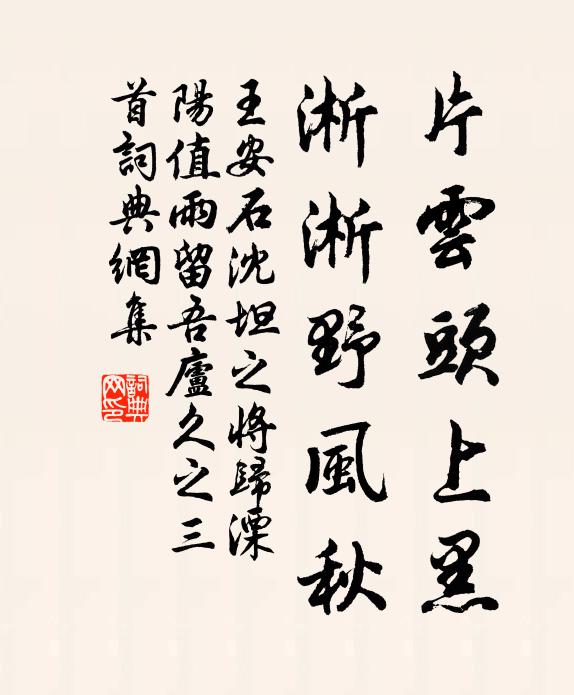 片雲頭上黑
淅淅野風秋
王安石沈坦之將歸溧
陽值雨留吾廬久之三
首詞典網集
詞典
网印